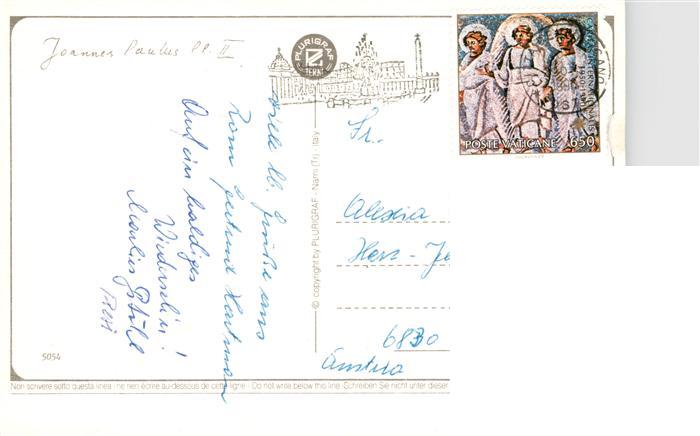 Joannes Paulus PP. II
PLURIGRAF
TERNI
POSTE VATICANE 650
viele lb. Grüße aus
Rom Gertrud Hartmann
Auf ein baldiges
Wiedersehen!
Resi
© copyright by PLURIGRAF - Narni (Tr) - Italy
Fr.
Alexia
Herz - Je
6830
Austria
5054
Non scrivere sotto questa linea - ne rien écrire au-dessous de cette ligne - Do not write below this line. Schreiben Sie nicht unter dieser